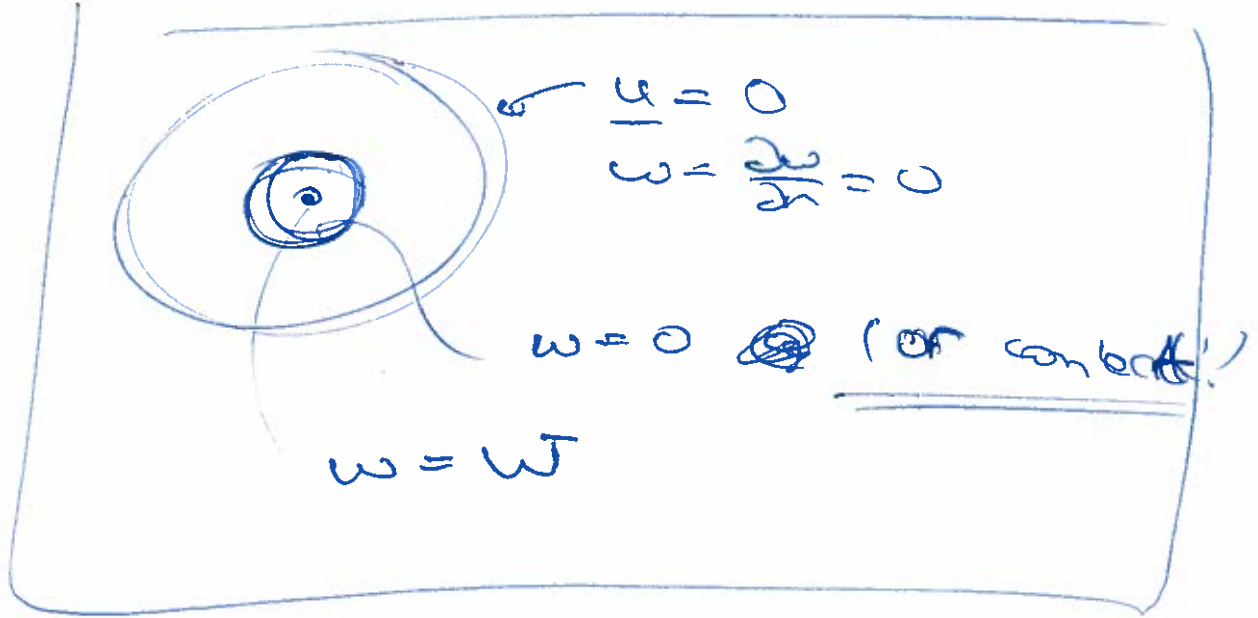 u = 0
w = ∂w/∂n = 0
w = 0 (or contact!)
w = W